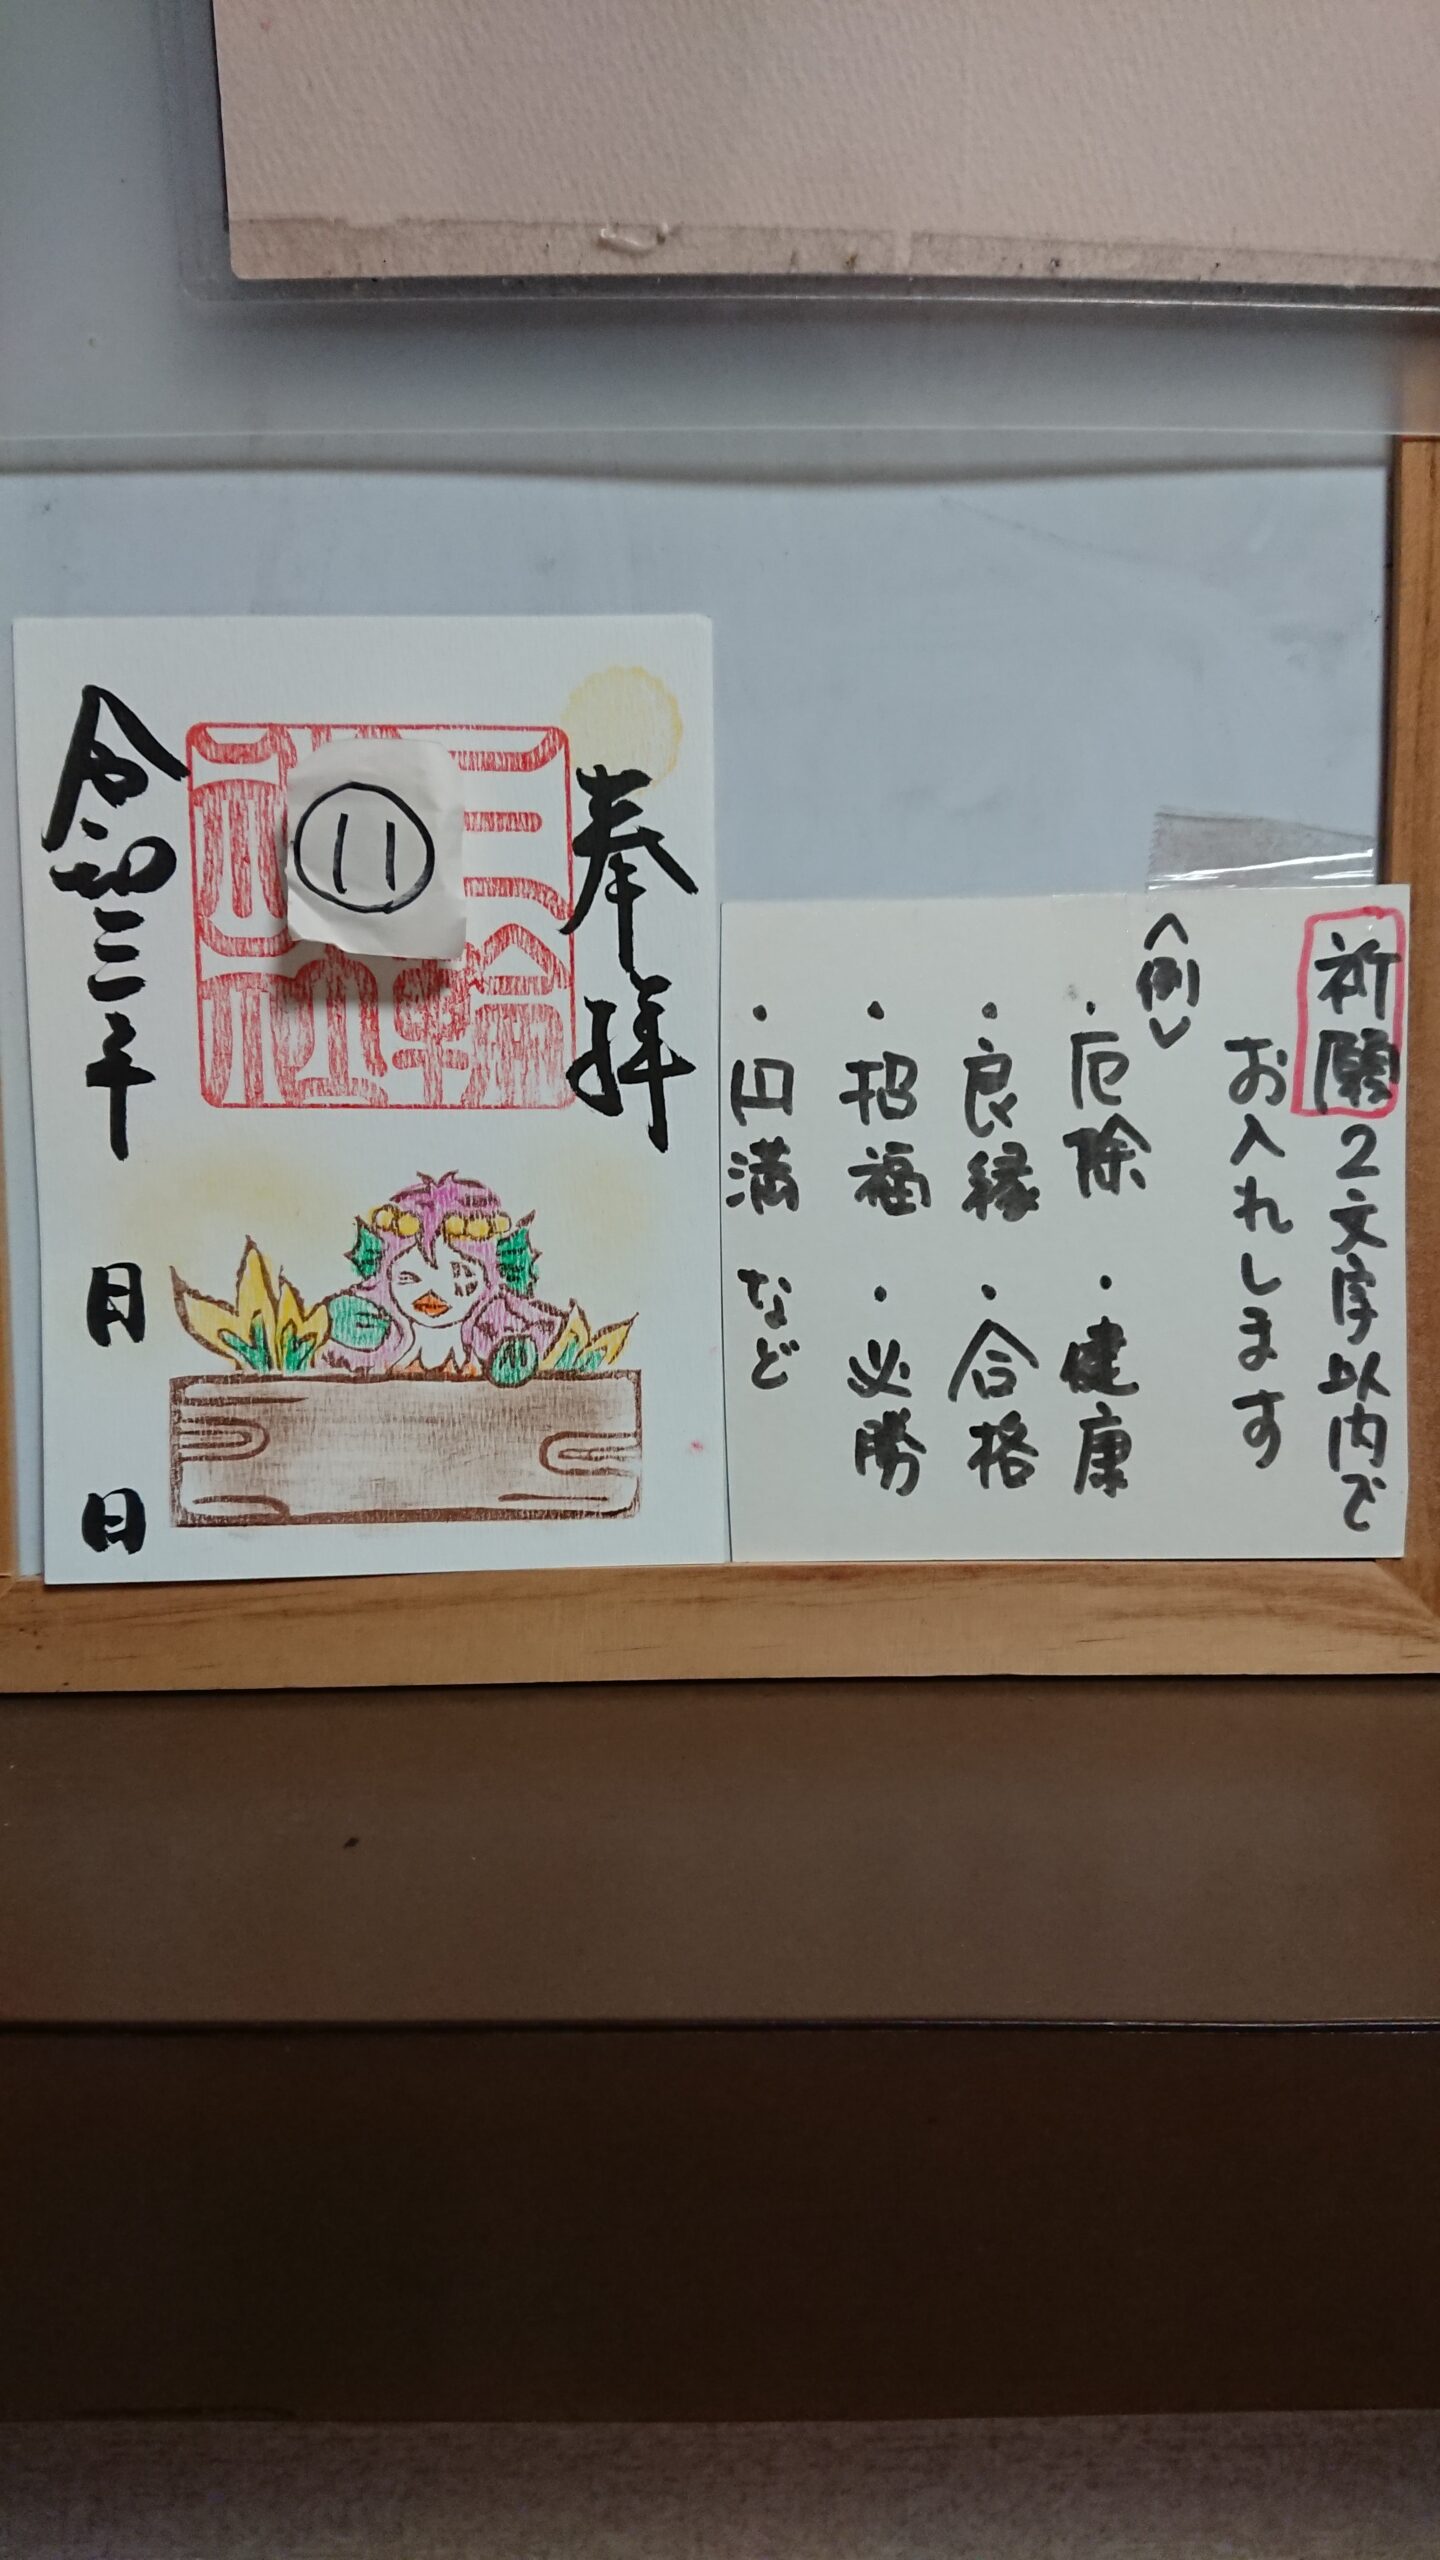 奉拝
三輪神社
⑪
令和三年
月
日
祈願2文字以内で
お入れします
<例>
・厄除 ・健康
・良縁 ・合格
・招福 ・必勝
・円満 など